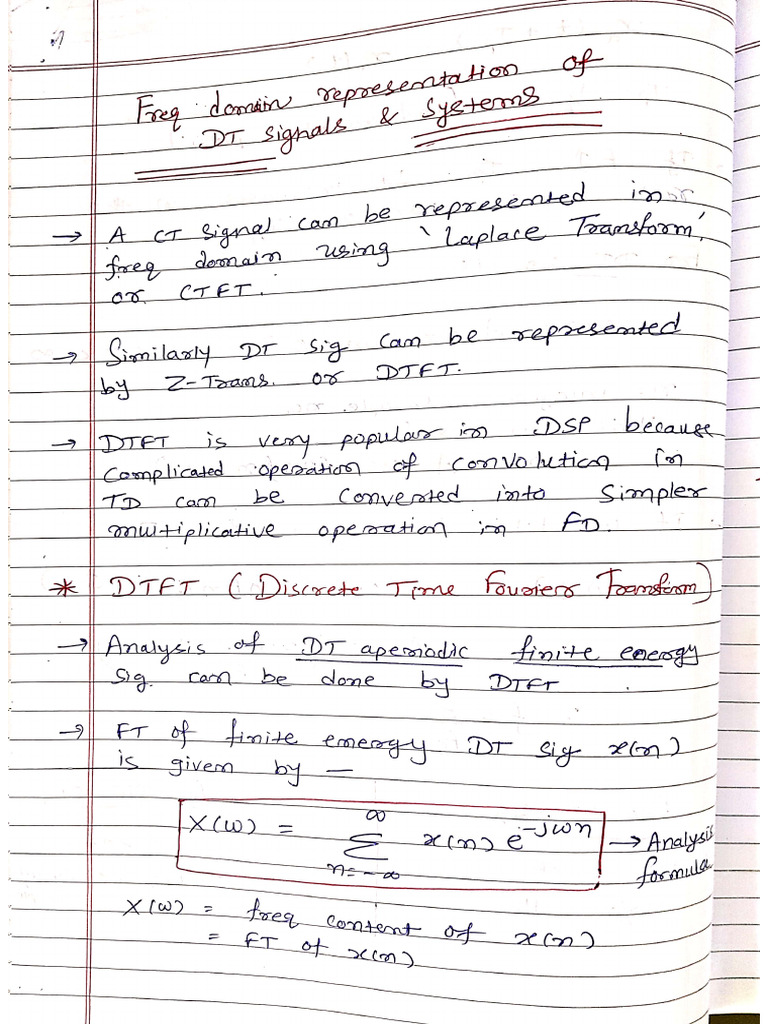 Freq domain representation of
DT signals & Systems
→ A CT signal can be represented in
freq domain using 'Laplace Transform'
or CTFT.
→ Similarly DT sig can be represented
by Z-Trans. or DTFT.
→ DTFT is very popular in DSP because
complicated operation of convolution in
TD can be converted into simpler
multiplicative operation in FD.
* DTFT (Discrete Time Fourier Transform)
→ Analysis of DT aperiodic finite energy
sig. can be done by DTFT.
→ FT of finite energy DT sig x(n)
is given by —
X(ω) = ∞∑n=-∞ x(n) e^-jωn → Analysis
formula
X(ω) = freq content of x(n)
= FT of x(n)